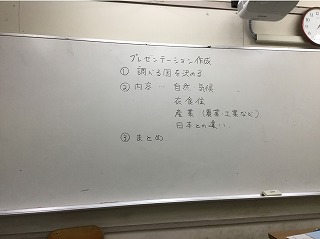 プレゼンテーション作成
① 調べる国を決める
② 内容… 自然・気候
衣食住
産業(農業・工業など)
日本との違い…
③ まとめ